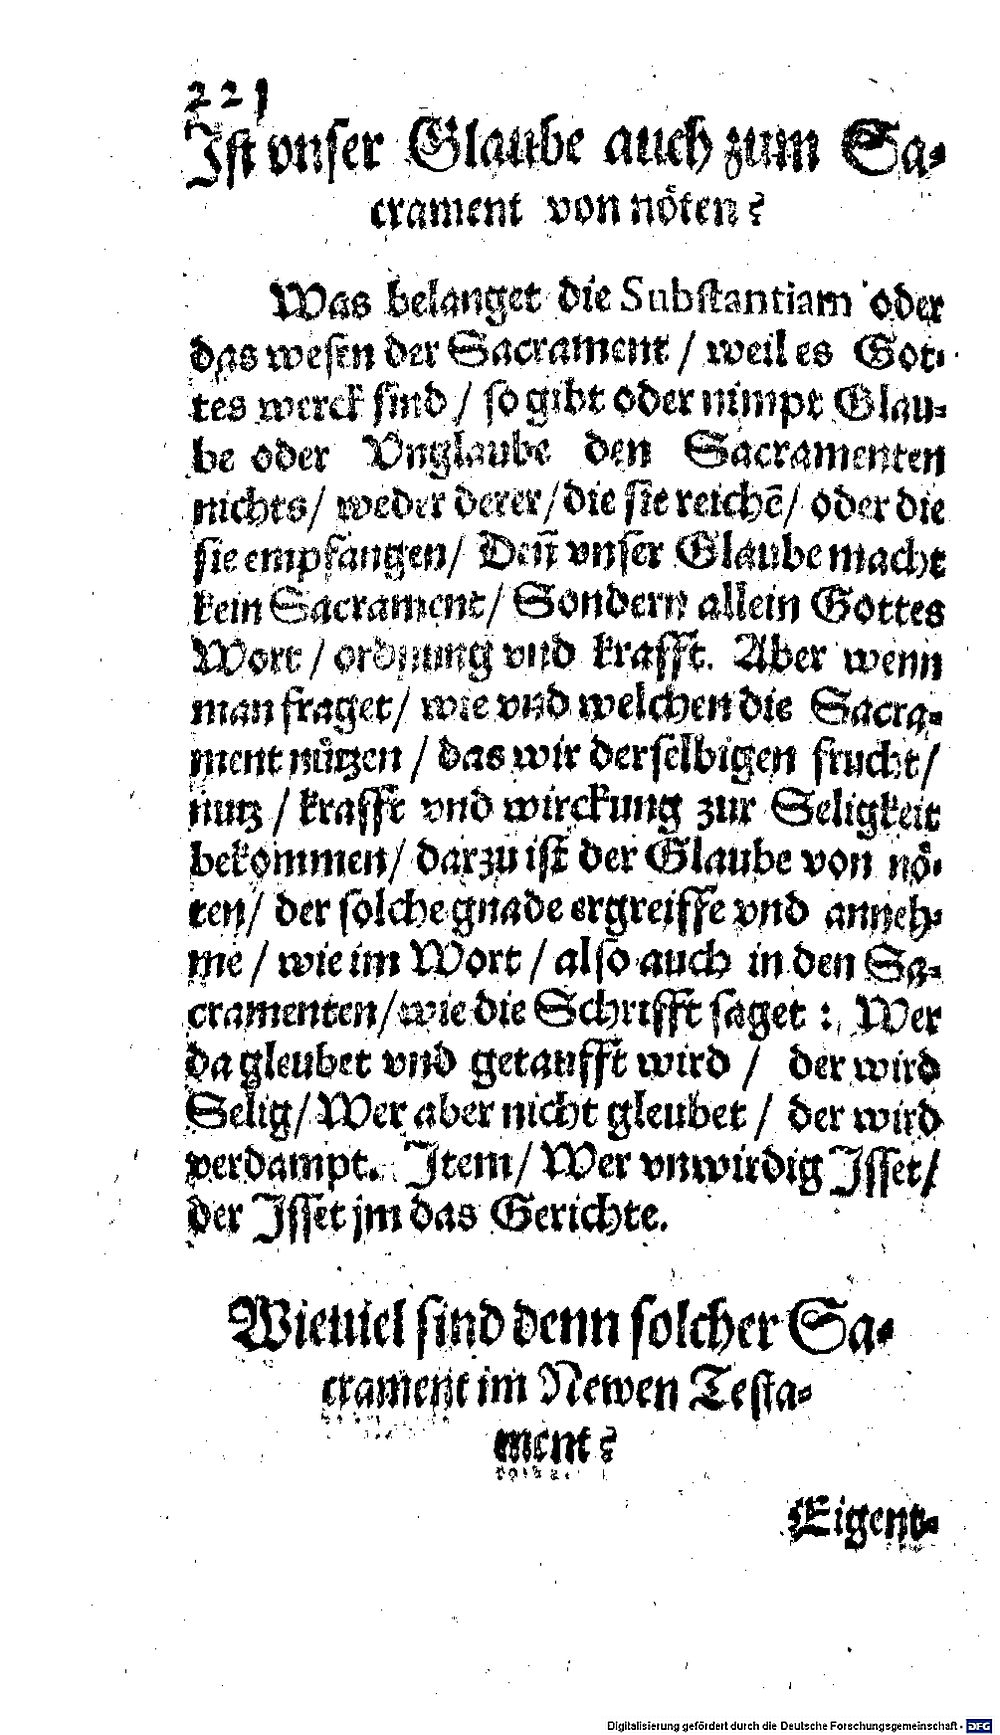 221
Ist vnser Glaube auch zum Sa-
crament von nöten?
Was belanget die Substantiam oder
das wesen der Sacrament / weil es Got-
tes werck sind / so gibt oder nimpt Glau-
be oder Vnglaube den Sacramenten
nichts / weder derer / die sie reichē / oder die
sie empfangen / Deñ vnser Glaube macht
kein Sacrament / Sondern allein Gottes
Wort / ordnung vnd krafft. Aber wenn
man fraget / wie vnd welchen die Sacra-
ment nützen / das wir derselbigen frucht /
nutz / krafft vnd wirckung zur Seligkeit
bekommen / darzu ist der Glaube von nö-
ten / der solche gnade ergreiffe vnd anneh-
me / wie im Wort / also auch in den Sa-
cramenten / wie die Schrifft saget : Wer
da gleubet vnd getaufft wird / der wird
Selig / Wer aber nicht gleubet / der wird
verdampt. Item / Wer vnwirdig Isset /
der Isset jm das Gerichte.
Wieuiel sind denn solcher Sa-
crament im Newen Testa-
ment?
Eigent-
Digitalisierung gefördert durch die Deutsche Forschungsgemeinschaft - DFG